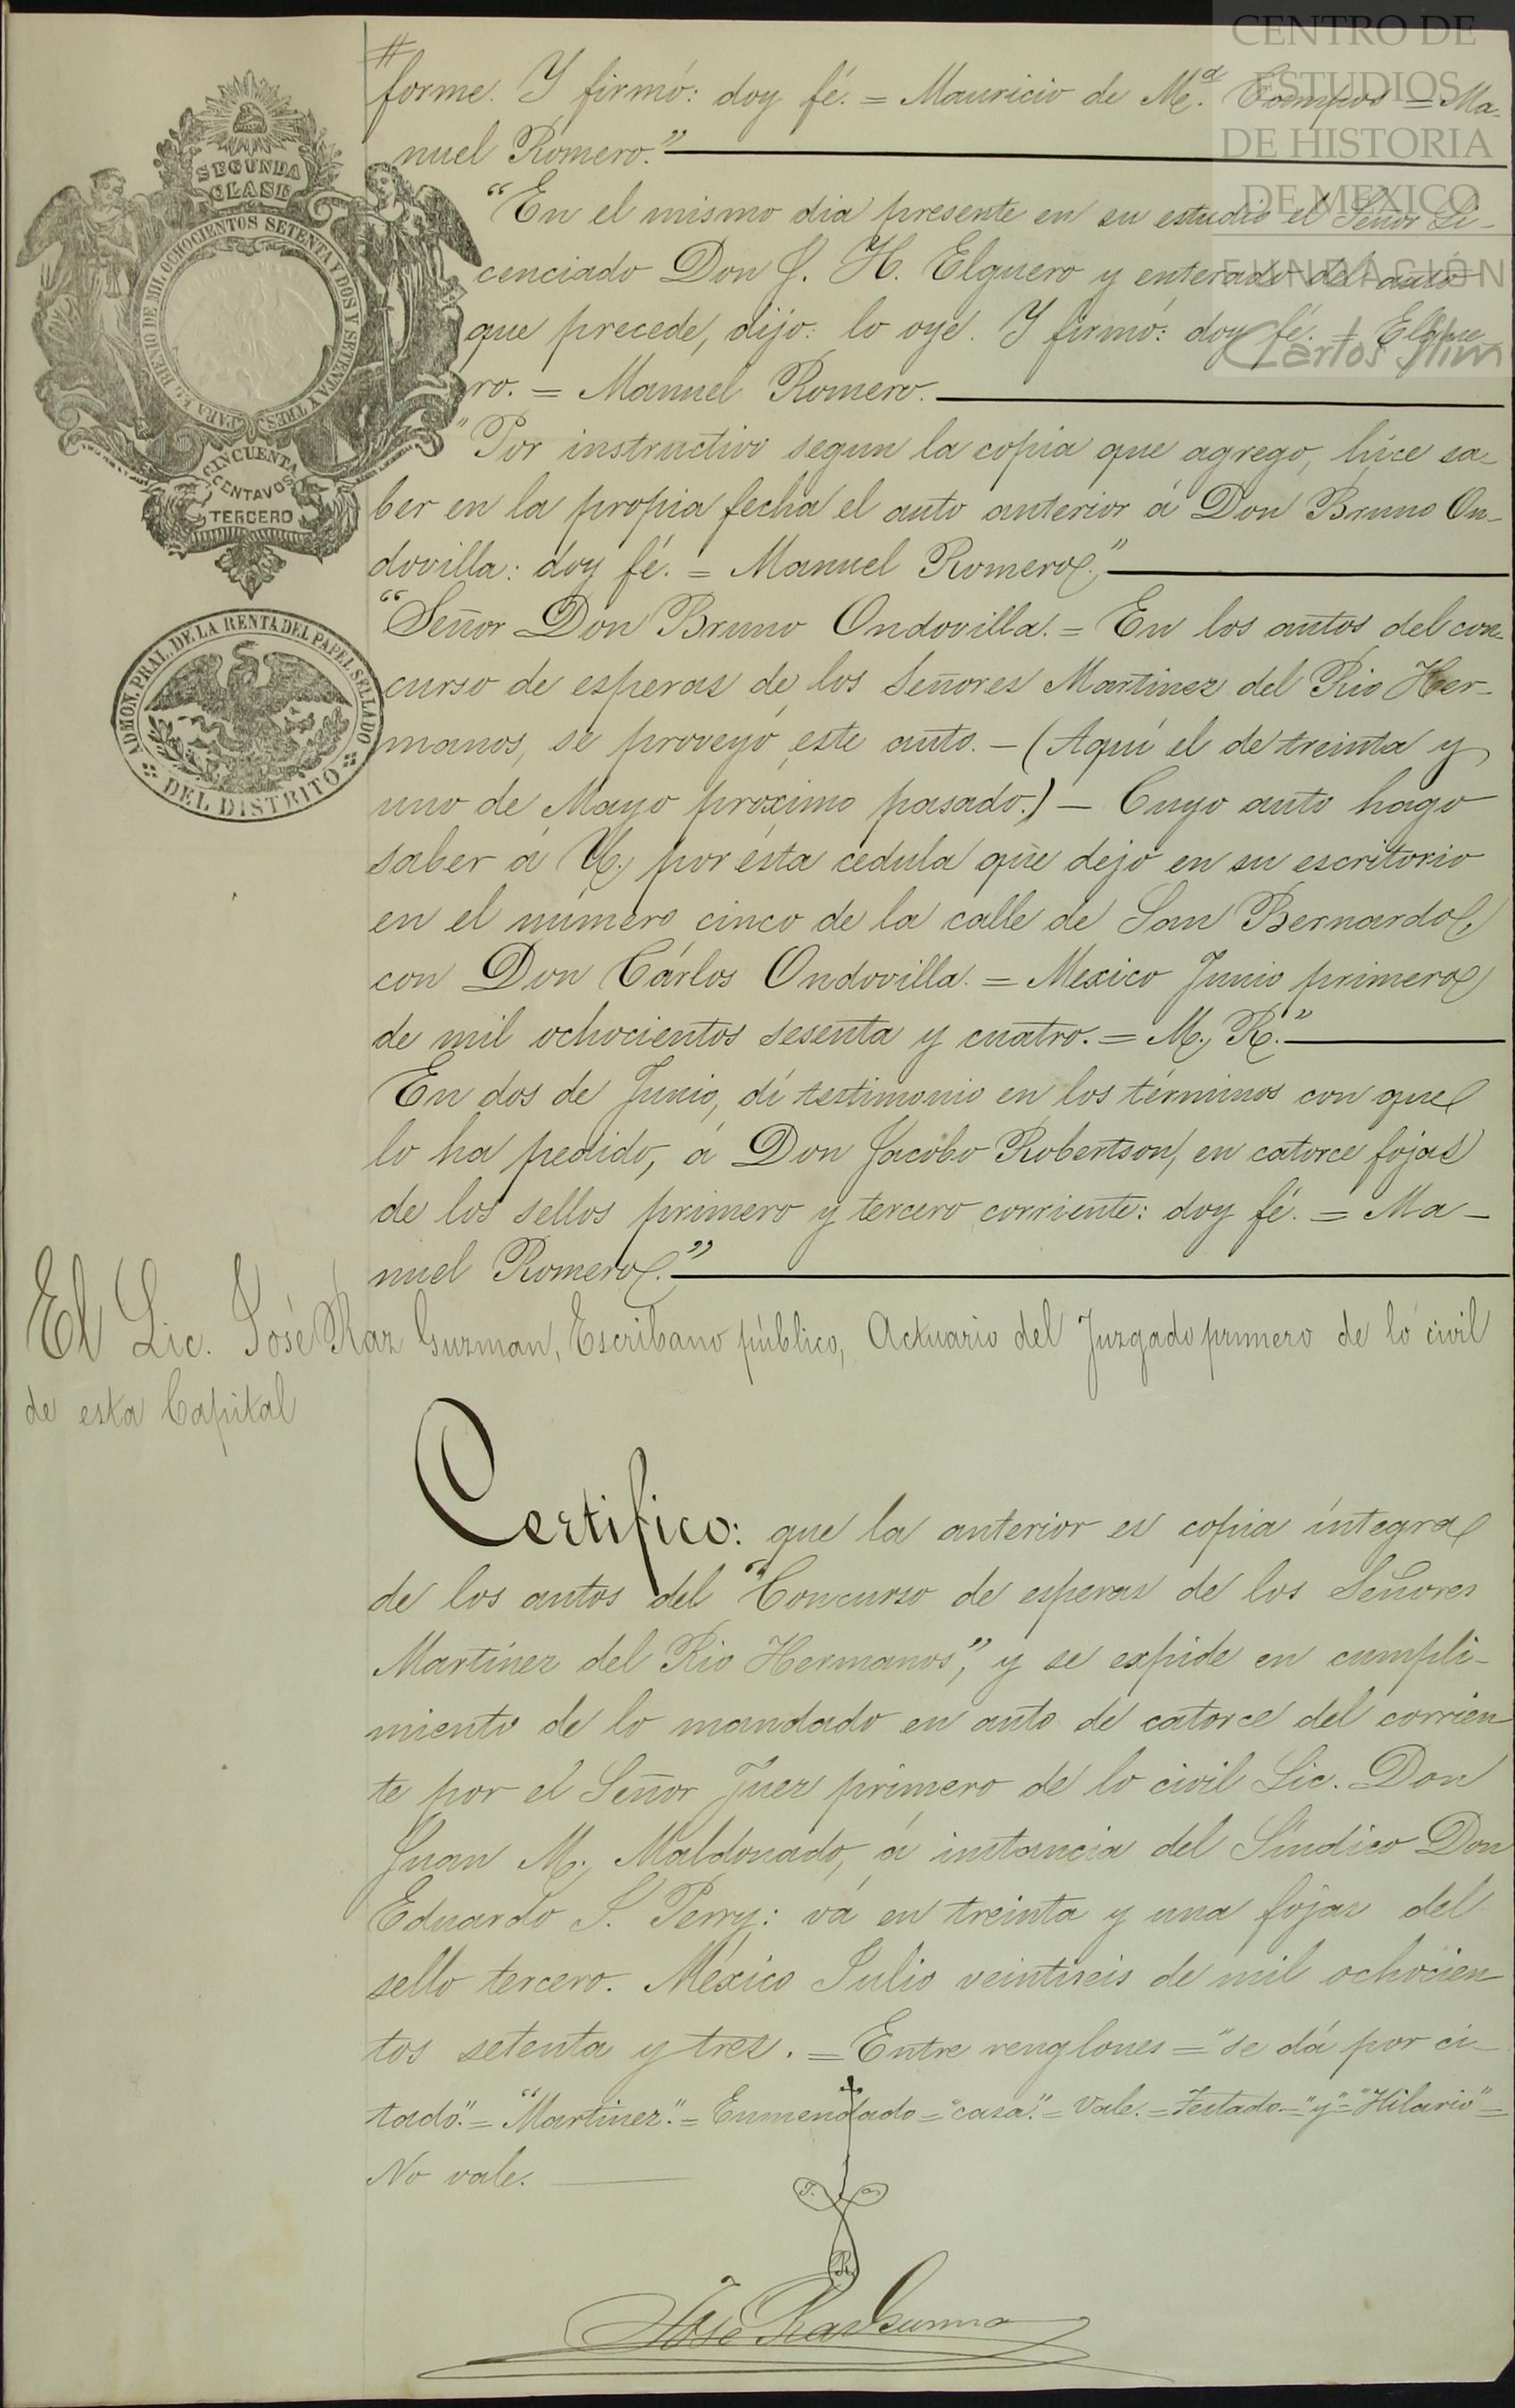 CENTRO DE
ESTUDIOS
DE HISTORIA
DE MEXICO
FUNDACIÓN
Carlos Slim
SEGUNDA
CLASE
PARA EL BIENIO DE MIL OCHOCIENTOS SETENTA Y DOS Y SETENTA Y TRES
CINCUENTA
CENTAVOS
TERCERO
ADMON. PRAL. DE LA RENTA DEL PAPEL SELLADO
DEL DISTRITO
forme. Y firmó: doy fé. = Mauricio de M.ª Campos = Ma-
nuel Romero."
"En el mismo dia presente en su estudio el Señor Li-
cenciado Don J. H. Elguero y enterado del auto
que precede, dijo: lo oye. Y firmó: doy fé. = Elgue-
ro. = Manuel Romero.
"Por instructivo segun la copia que agrego, hice sa-
ber en la propia fecha el auto anterior á Don Bruno On-
dovilla: doy fé. = Manuel Romero."
"Señor Don Bruno Ondovilla. = En los autos del con-
curso de esperas de los Señores Martinez del Rio Her-
manos, se proveyó este auto. - (Aquí el de treinta y
uno de Mayo próximo pasado.) - Cuyo auto hago
saber á V. por ésta cedula que dejo en su escritorio
en el número cinco de la calle de San Bernardo
con Don Cárlos Ondovilla. = Mexico Junio primero
de mil ochocientos sesenta y cuatro. = M. R."
En dos de Junio, dí testimonio en los términos con que
lo ha pedido, á Don Jacobo Robertson, en catorce fojas
de los sellos primero y tercero corriente: doy fé. = Ma-
nuel Romero."
El Lic. José Raz Guzman, Escribano público, Actuario del Juzgado primero de lo civil
de esta Capital
Certifico: que la anterior es copia íntegra
de los autos del "Concurso de esperas de los Señores
Martínez del Rio Hermanos", y se expide en cumpli-
miento de lo mandado en auto de catorce del corrien
te por el Señor Juez primero de lo civil Lic. Don
Juan M. Maldonado, á instancia del Síndico Don
Eduardo S. Perry: vá en treinta y una fojas del
sello tercero. México Julio veintiseis de mil ochocien
tos setenta y tres. = Entre renglones = "se dá por ci-
tado." = "Martinez." = Enmendado = "casa." = Vale. = Testado = "y" = "Hilario" =
No vale.
José Raz Guzman